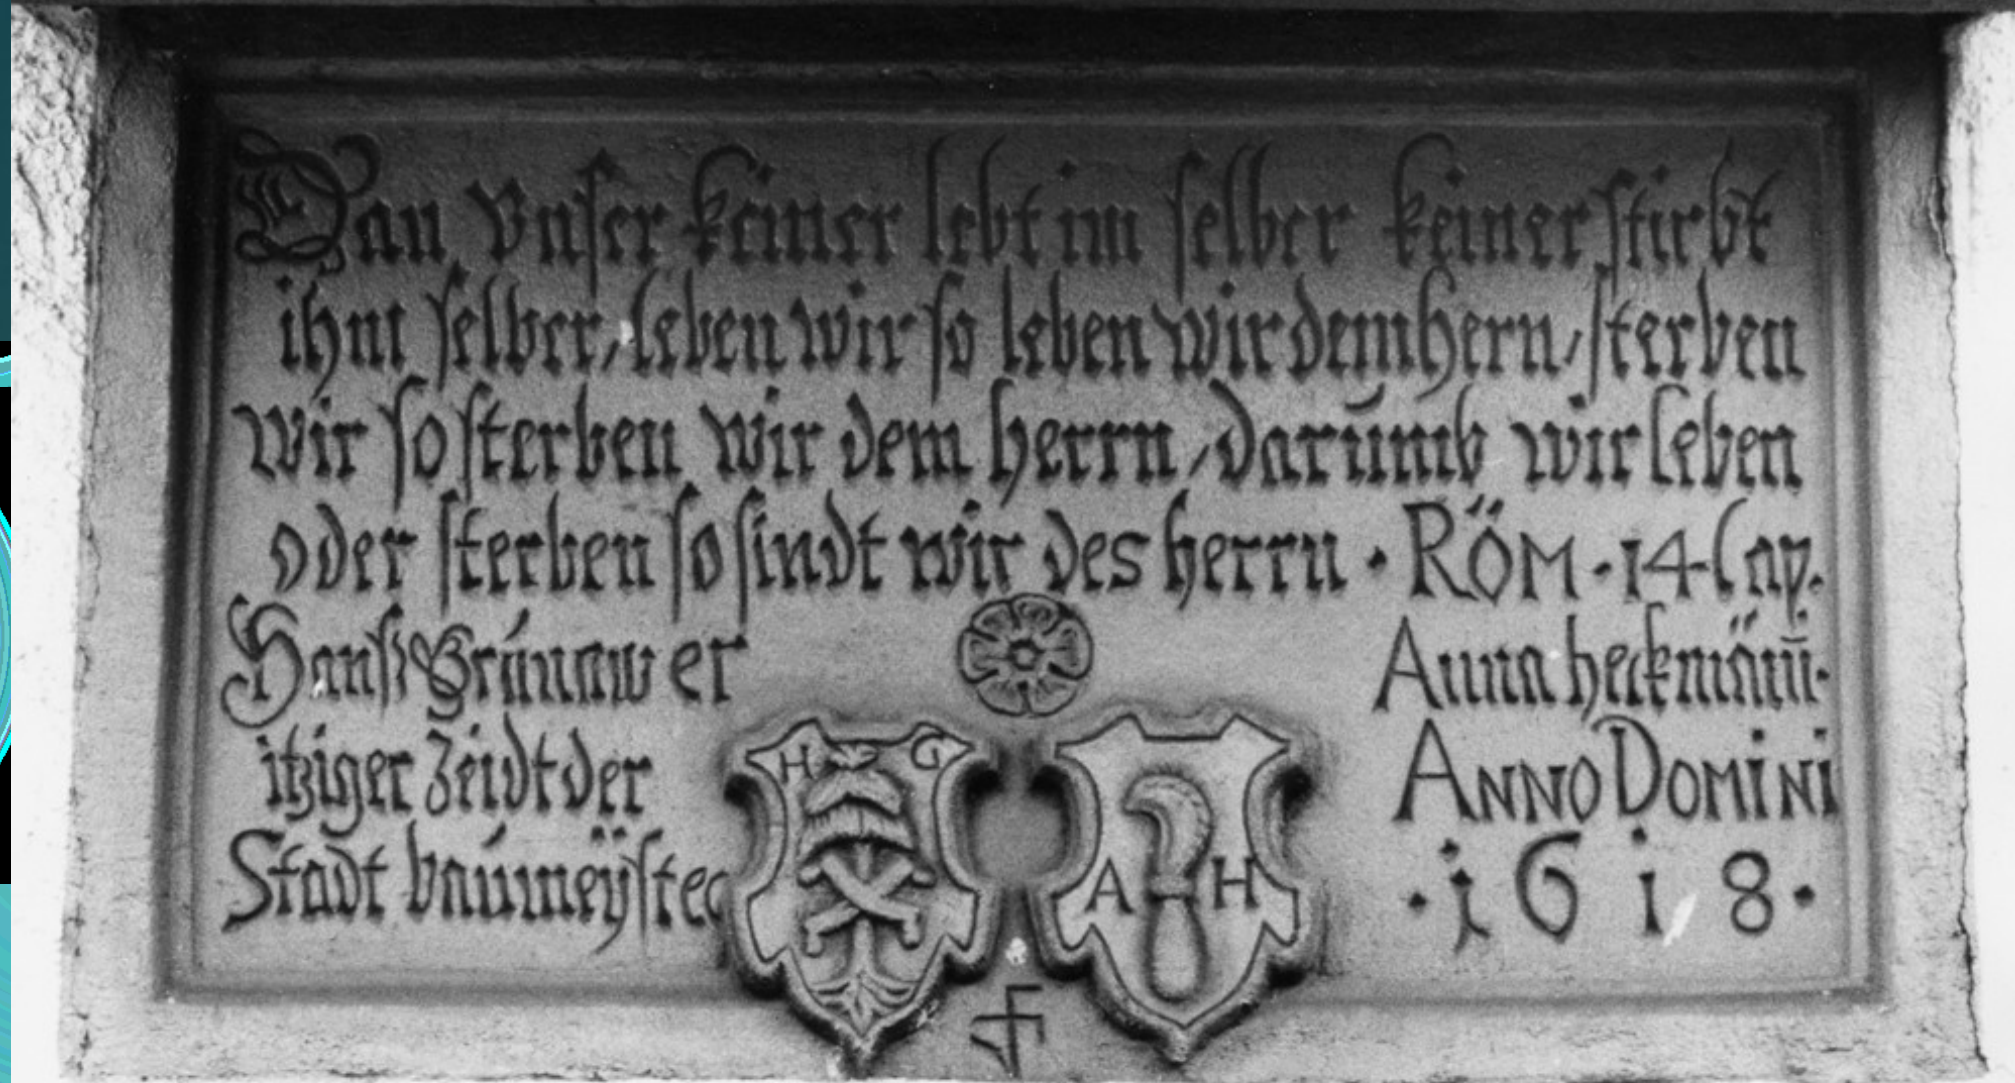 Dan vnser keiner lebt im selber keiner stirbt
ihm selber, leben wir so leben wir dem hern, sterben
wir so sterben wir dem herrn, darumb wir leben
oder sterben so sindt wir des herrn · RÖM · 14 Cap.
Hans Graunawer
itziger Zeidt der
Stadt baumeÿster
Anna heckmänn·
ANNO DOMINI
· 1618 ·
H G
A H